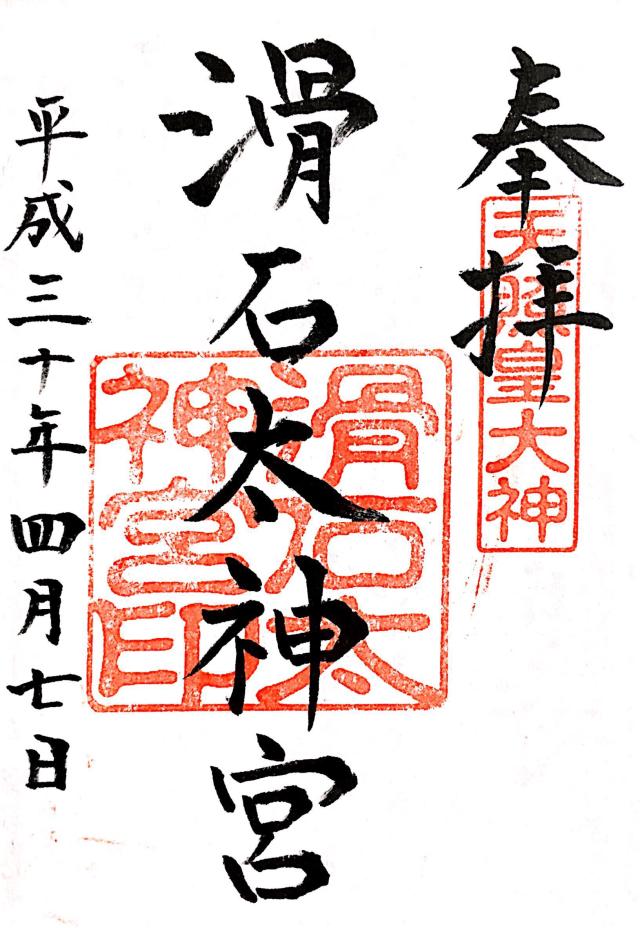 奉拝
天照皇大神
滑石太神宮
滑石太
神宮印
平成三十年四月七日